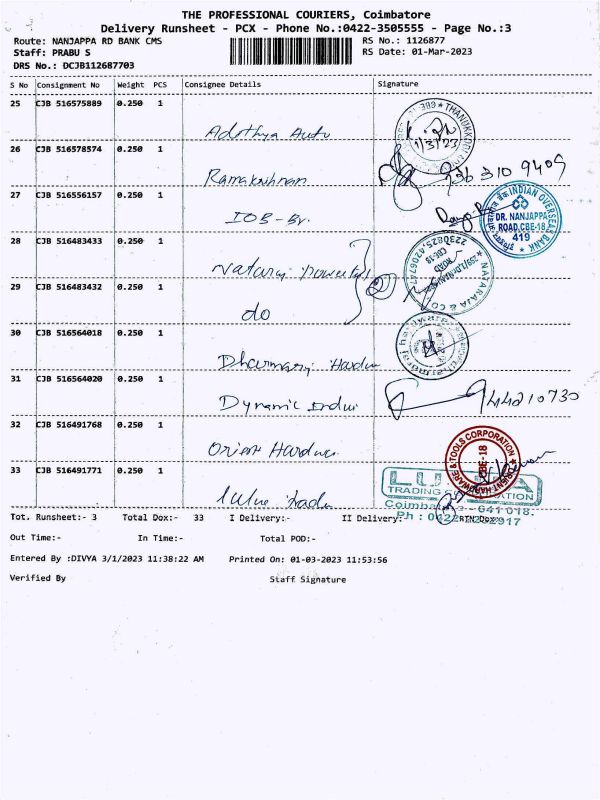 THE PROFESSIONAL COURIERS, Coimbatore
Delivery Runsheet - PCX - Phone No.:0422-3505555 - Page No.:3
Route: NANJAPPA RD BANK CMS
Staff: PRABU S
DRS No.: DCJB112687703
RS No.: 1126877
RS Date: 01-Mar-2023
S No Consignment No Weight PCS Consignee Details Signature
25 CJB 516575889 0.250 1
Adithya Auto
THANUKKODI
1/3/23
26 CJB 516578574 0.250 1
Ramakrishnan
936 310 9409
27 CJB 516556157 0.250 1
IOB - Br.
INDIAN OVERSEAS BANK
DR. NANJAPPA
ROAD, CBE-18
419
28 CJB 516483433 0.250 1
Nataraj
NATARAJA & CO
CBE-18
29 CJB 516483432 0.250 1
do
30 CJB 516564018 0.250 1
Dharmaraj Hardware
31 CJB 516564020 0.250 1
Dynamic
944210730
32 CJB 516491768 0.250 1
Orient Hardware
ORIENT HARDWARE & TOOLS CORPORATION
CBE-18
33 CJB 516491771 0.250 1
TRADING CORPORATION
Coimbatore - 641 018.
Tot. Runsheet:- 3 Total Dox:- 33 I Delivery:- II Delivery:- RTN Dox:-
Out Time:- In Time:- Total POD:-
Entered By :DIVYA 3/1/2023 11:38:22 AM Printed On: 01-03-2023 11:53:56
Verified By Staff Signature